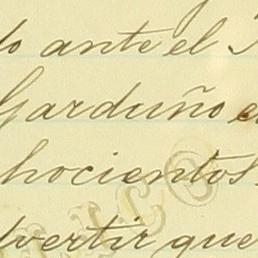 do ante el
Garduño e
hocientos
dvertir que